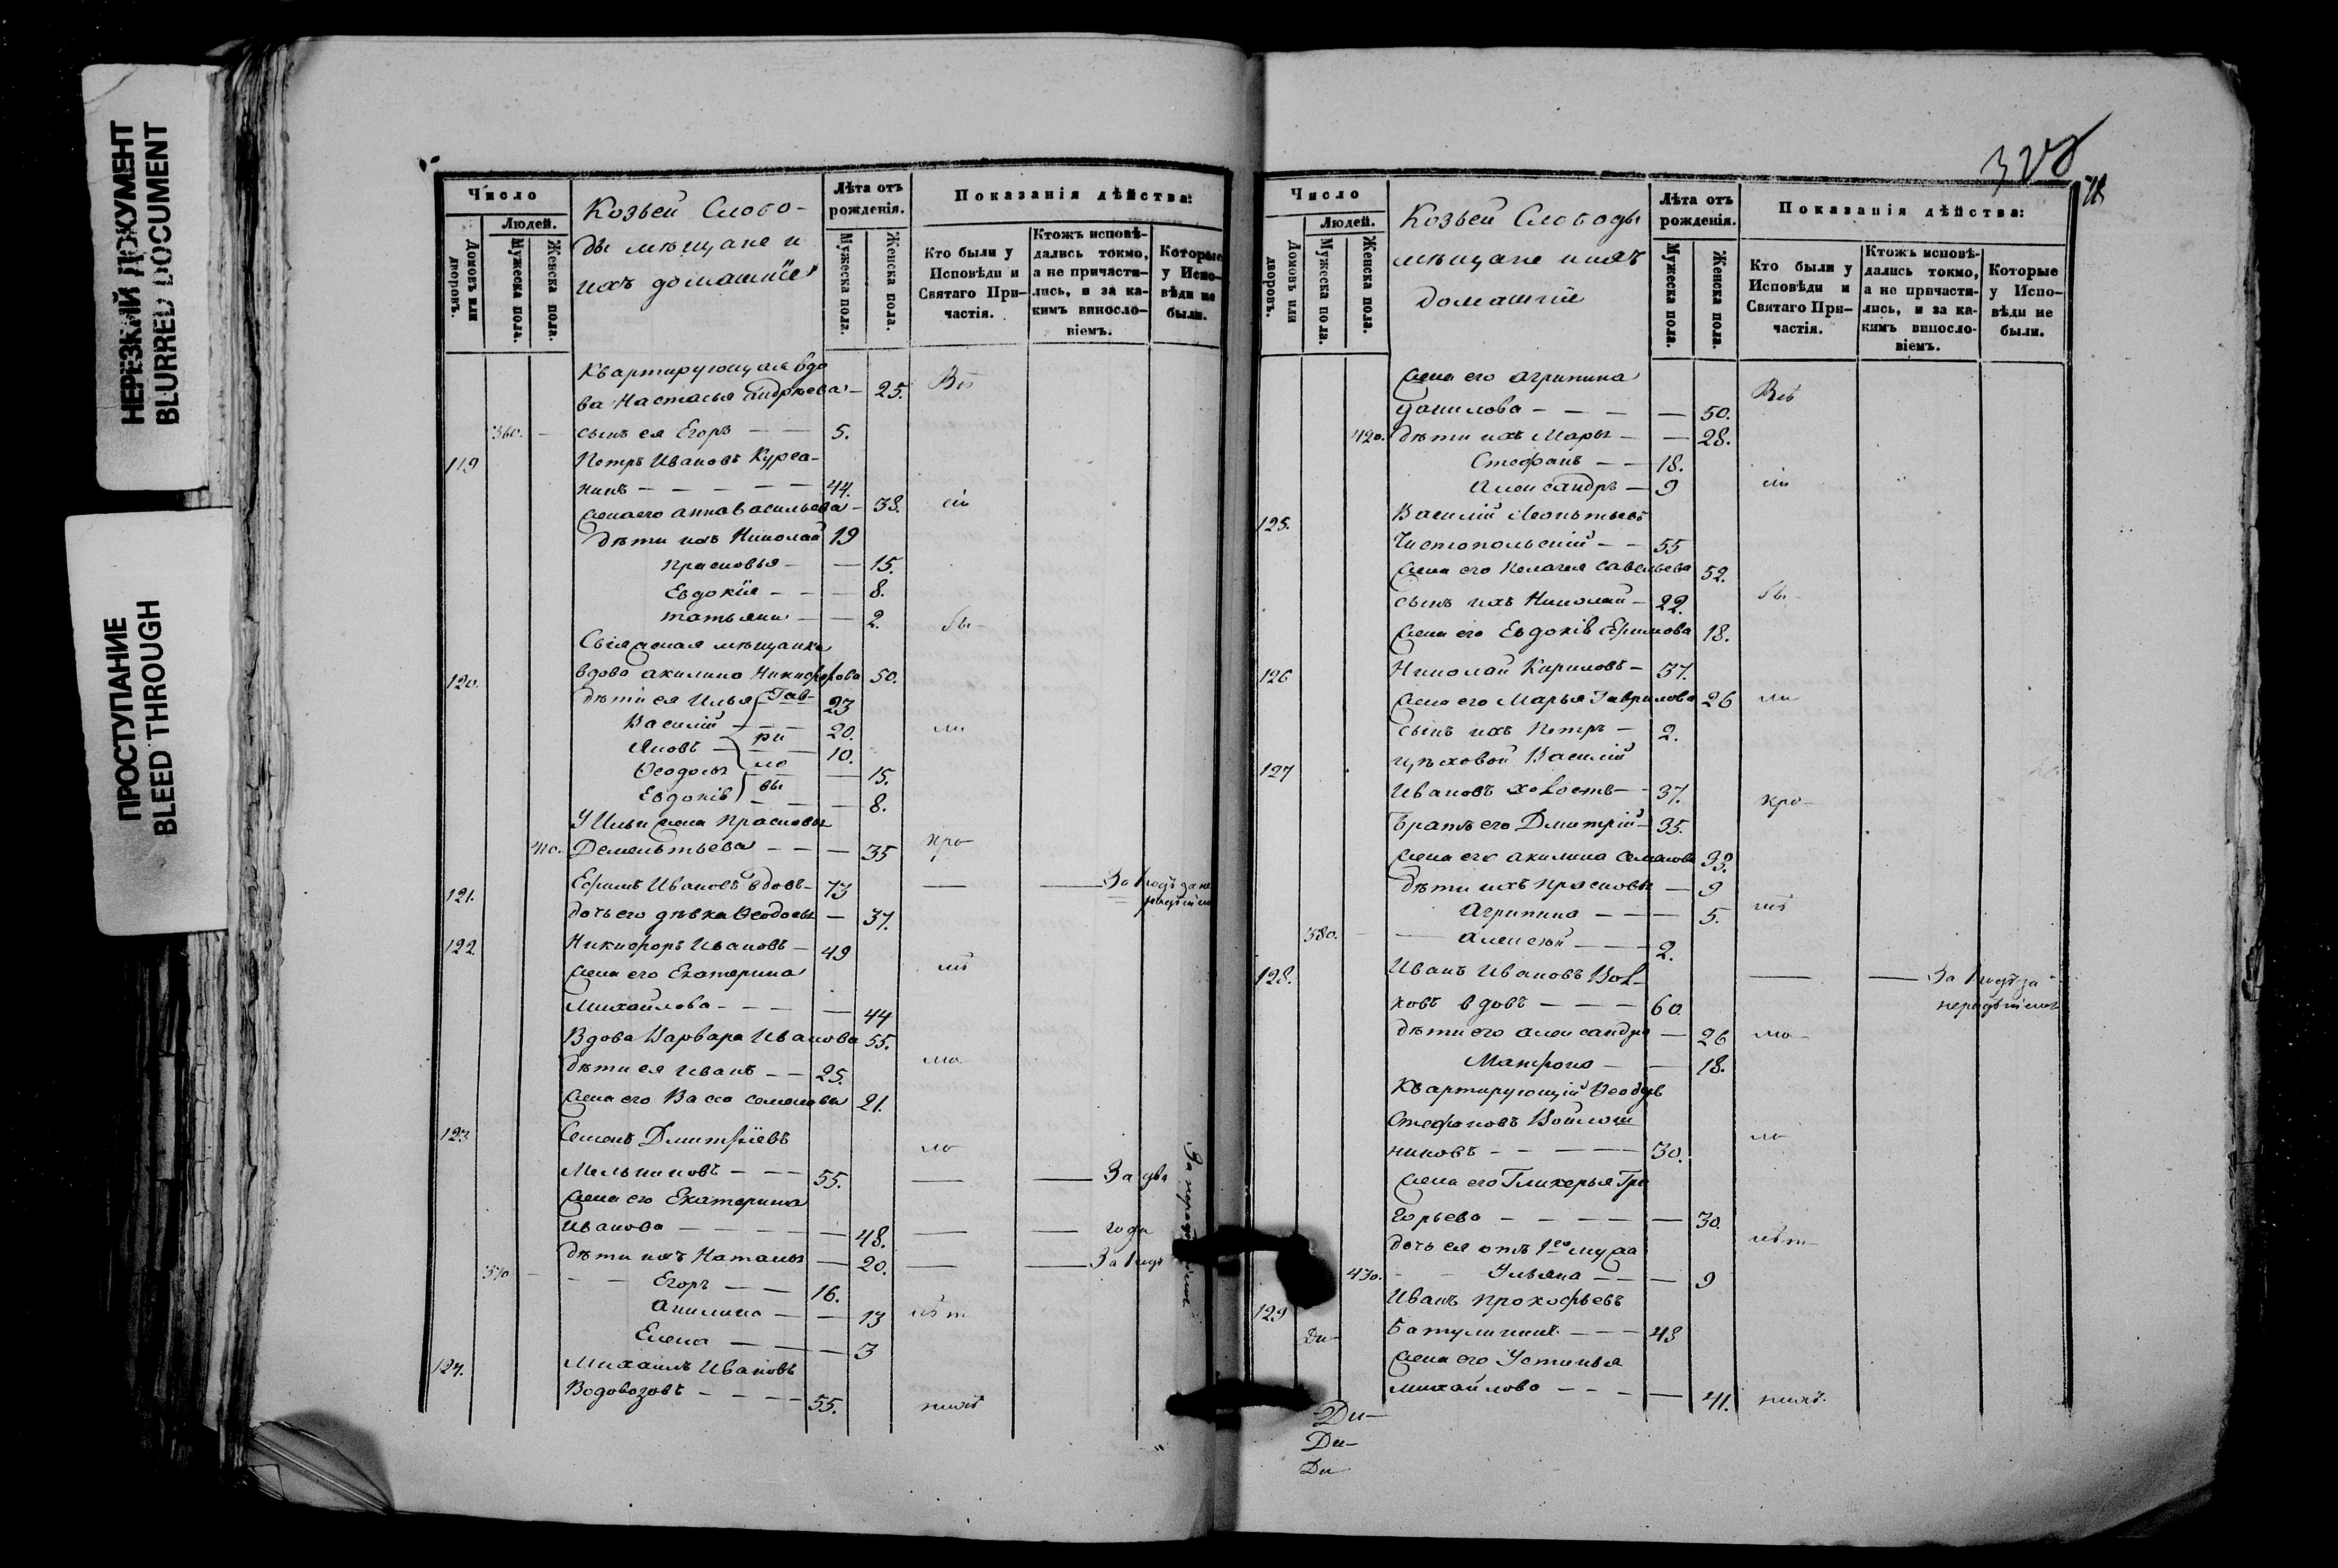 НЕРЕЗКИЙ ДОКУМЕНТ
BLURRED DOCUMENT
ПРОСТУПАНИЕ
BLEED THROUGH
Число
Людей.
Домовъ или дворовъ.
Мужеска пола.
Женска пола.
Козьей Слобо-
ды мѣщане и
ихъ домашніе
Лѣта отъ рожденія.
Мужеска пола.
Женска пола.
Показанія дѣйства:
Кто были у Исповѣди и Святаго При-частія.
Ктожъ исповѣ-дались токмо, а не причасти-лись, и за ка-кимъ виносло-віемъ.
Которые у Испо-вѣди не были.
Квартирующая вдо
ва Настасья Андреева — 25. Въ
360. — сынъ ея Егоръ — — 5.
119 Петръ Ивановъ Курса-
нинъ — — — — — 44.
Жена его Анна Васильева — 38. сіи
дѣти ихъ Николай 19
Прасковья — — 15.
Евдокія — — — 8.
Татьяна — — 2. бы-
Свіяжская мѣщанка
120. вдова Акилина Никифорова 50.
дѣти ея Илья Гав- 23
Василій — ри — 20. ли
Яковъ — — 10.
Ѳеодосья ло — 15.
Евдокія вы — — 8.
У Ильи жена Прасковья
410. Дементьева — — — 35 про
121. Ефимъ Ивановъ вдовъ — 73 — — За 1 годъ за не
радѣніемъ
дочь его дѣвка Ѳеодосья — 37.
122. Никифоръ Ивановъ — 49
Жена его Екатерина
Михайлова — — — — 44
Вдова Варвара Иванова 55.
дѣти ея Иванъ — — 25.
Жена его Васса Семенова 21.
123 Семенъ Дмитріевъ
Мельниковъ — — — 55. — — За два
Жена его Екатерина
Иванова — — — — — 48. — — года
дѣти ихъ Наталья — 20. — — За 1 годъ
370 — — — Егоръ — — 16.
Акилина — — 13
Елена — — — 3
За нерадѣніемъ
124. Михаилъ Ивановъ
Водовозовъ — — — — 55. нихъ
Число
Людей.
Домовъ или дворовъ.
Мужеска пола.
Женска пола.
Козьей Слободы
мѣщане и ихъ
домашніе
Лѣта отъ рожденія.
Мужеска пола.
Женска пола.
Показанія дѣйства:
Кто были у Исповѣди и Святаго При-частія.
Ктожъ исповѣ-дались токмо, а не причасти-лись, и за ка-кимъ виносло-віемъ.
Которые у Испо-вѣди не были.
Жена его Агрипина
Данилова — — — — 50. Въ
420. дѣти ихъ Марья — — 28.
Стефанъ — — 18.
Александръ — 9 сіи
125. Василій Леонтьевъ
Чистопольскій — — 55
Жена его Пелагея Савельева 52.
сынъ ихъ Николай — 22. бы-
Жена его Евдокія Ефимова 18.
126 Николай Кириловъ — 37.
Жена его Марья Гаврилова 26 ли
сынъ ихъ Петръ — 2.
127 цѣховой Василій
Ивановъ — — 37. кро-
братъ его Дмитрій — 35.
Жена его Акилина Семенова 33.
дѣти ихъ Прасковья — 9
Агрипина — — — 5.
380. — — Алексѣй — — — 2.
128. Иванъ Ивановъ Вол-
ковъ вдовъ — — — 60. — — За 1 годъ за
нерадѣніемъ
дѣти его Александра — 26
Матрона — — 18.
Квартирующій Ѳеодоръ
Стефановъ Войлош
никовъ — — — — — 30.
Жена его Гликерья Гри
горьева — — — — — 30.
дочь ея отъ 1го мужа
430. — — Ульяна — — — 9
129 Иванъ Прокофьевъ
Ди- Батулинъ — — — 48
Жена его Устинья
Михайлова — — — — 41. нихъ.
Ди-
Ди-
Ди